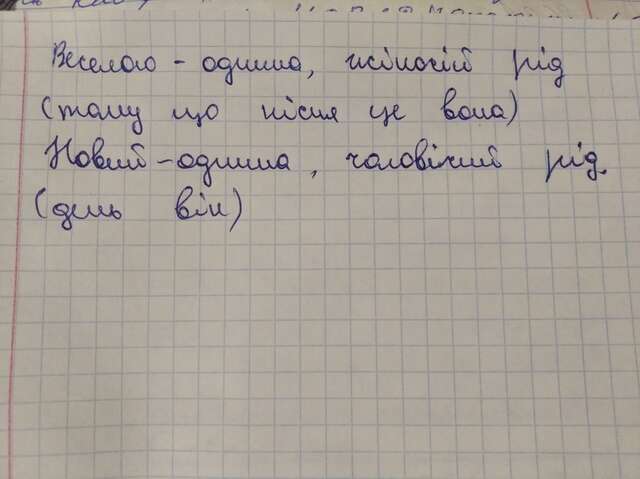 Веселою - однина, жіночій рід
(тому що пісня це вона)
Новий - однина, чоловічий рід.
(день він)